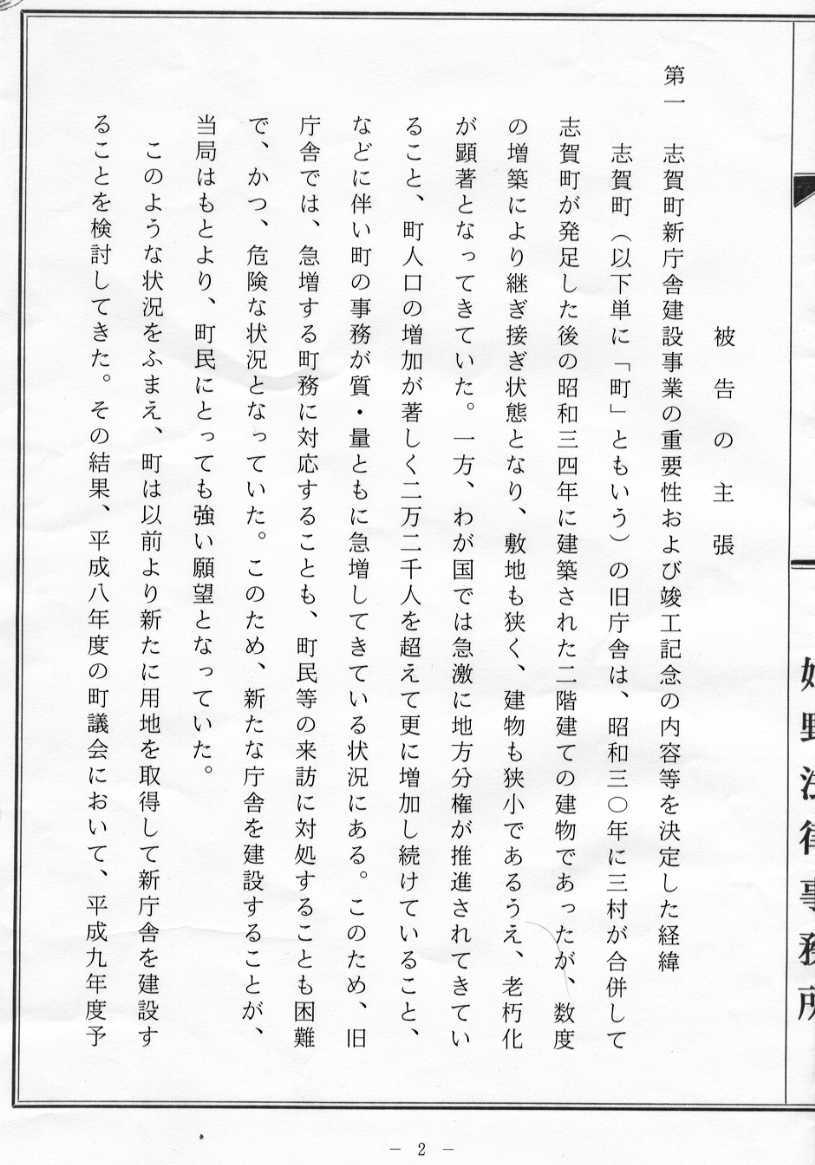 被告の主張
第一　志賀町新庁舎建設事業の重要性および竣工記念の内容等を決定した経緯
志賀町（以下単に「町」ともいう）の旧庁舎は、昭和三〇年に三村が合併して
志賀町が発足した後の昭和三四年に建築された二階建ての建物であったが、数度
の増築により継ぎ接ぎ状態となり、敷地も狭く、建物も狭小であるうえ、老朽化
が顕著となってきていた。一方、わが国では急激に地方分権が推進されてきてい
ること、町人口の増加が著しく二万二千人を超えて更に増加し続けていること、
などに伴い町の事務が質・量ともに急増してきている状況にある。このため、旧
庁舎では、急増する町務に対応することも、町民等の来訪に対処することも困難
で、かつ、危険な状況となっていた。このため、新たな庁舎を建設することが、
当局はもとより、町民にとっても強い願望となっていた。
このような状況をふまえ、町は以前より新たに用地を取得して新庁舎を建設す
ることを検討してきた。その結果、平成八年度の町議会において、平成九年度予
野法律事務所
－ 2 －